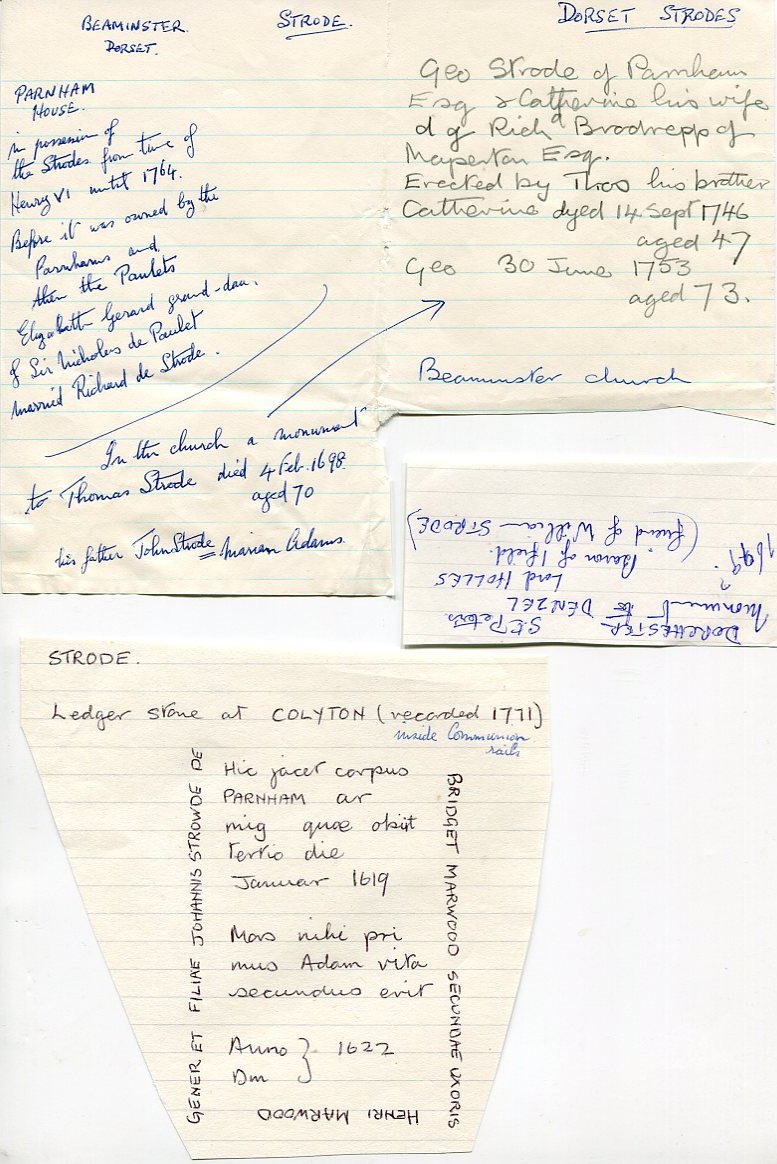 BEAMINSTER.
DORSET.
STRODE.
PARNHAM
HOUSE.
in possession of
the Strodes from time of
Henry VI until 1764.
Before it was owned by the
Parnhams and
then the Paulets
Elizabeth Gerard grand-dau.
of Sir Nicholas de Paulet
married Richard de Strode.
In the church a monument
to Thomas Strode died 4 Feb. 1698.
aged 70
his father John Strode = Marian Adams.
DORSET STRODES
Geo Strode of Parnham
Esq & Catherine his wife
d of Richd Brodrepp of
Maperton Esq.
Erected by Thos his brother
Catherine dyed 14 Sept 1746
aged 47
Geo 30 June 1753
aged 73.
Beaminster church
DORCHESTER St. Peters.
Monument to DENZEL
Lord HOLLES
1699. ? Baron of Ifield.
(friend of William STRODE)
STRODE.
Ledger stone at COLYTON (recorded 1771)
inside Communion
rails
Hic jacet corpus
PARNHAM ar
mig quae obiit
tertio die
Januar 1619
Mors mihi pri
mus Adam vita
secundus erit
Anno } 1622
Dm
BRIDGET MARWOOD SECUNDAE UXORIS
HENRI MARWOOD
GENER ET FILIAE JOHANNIS STROWDE DE